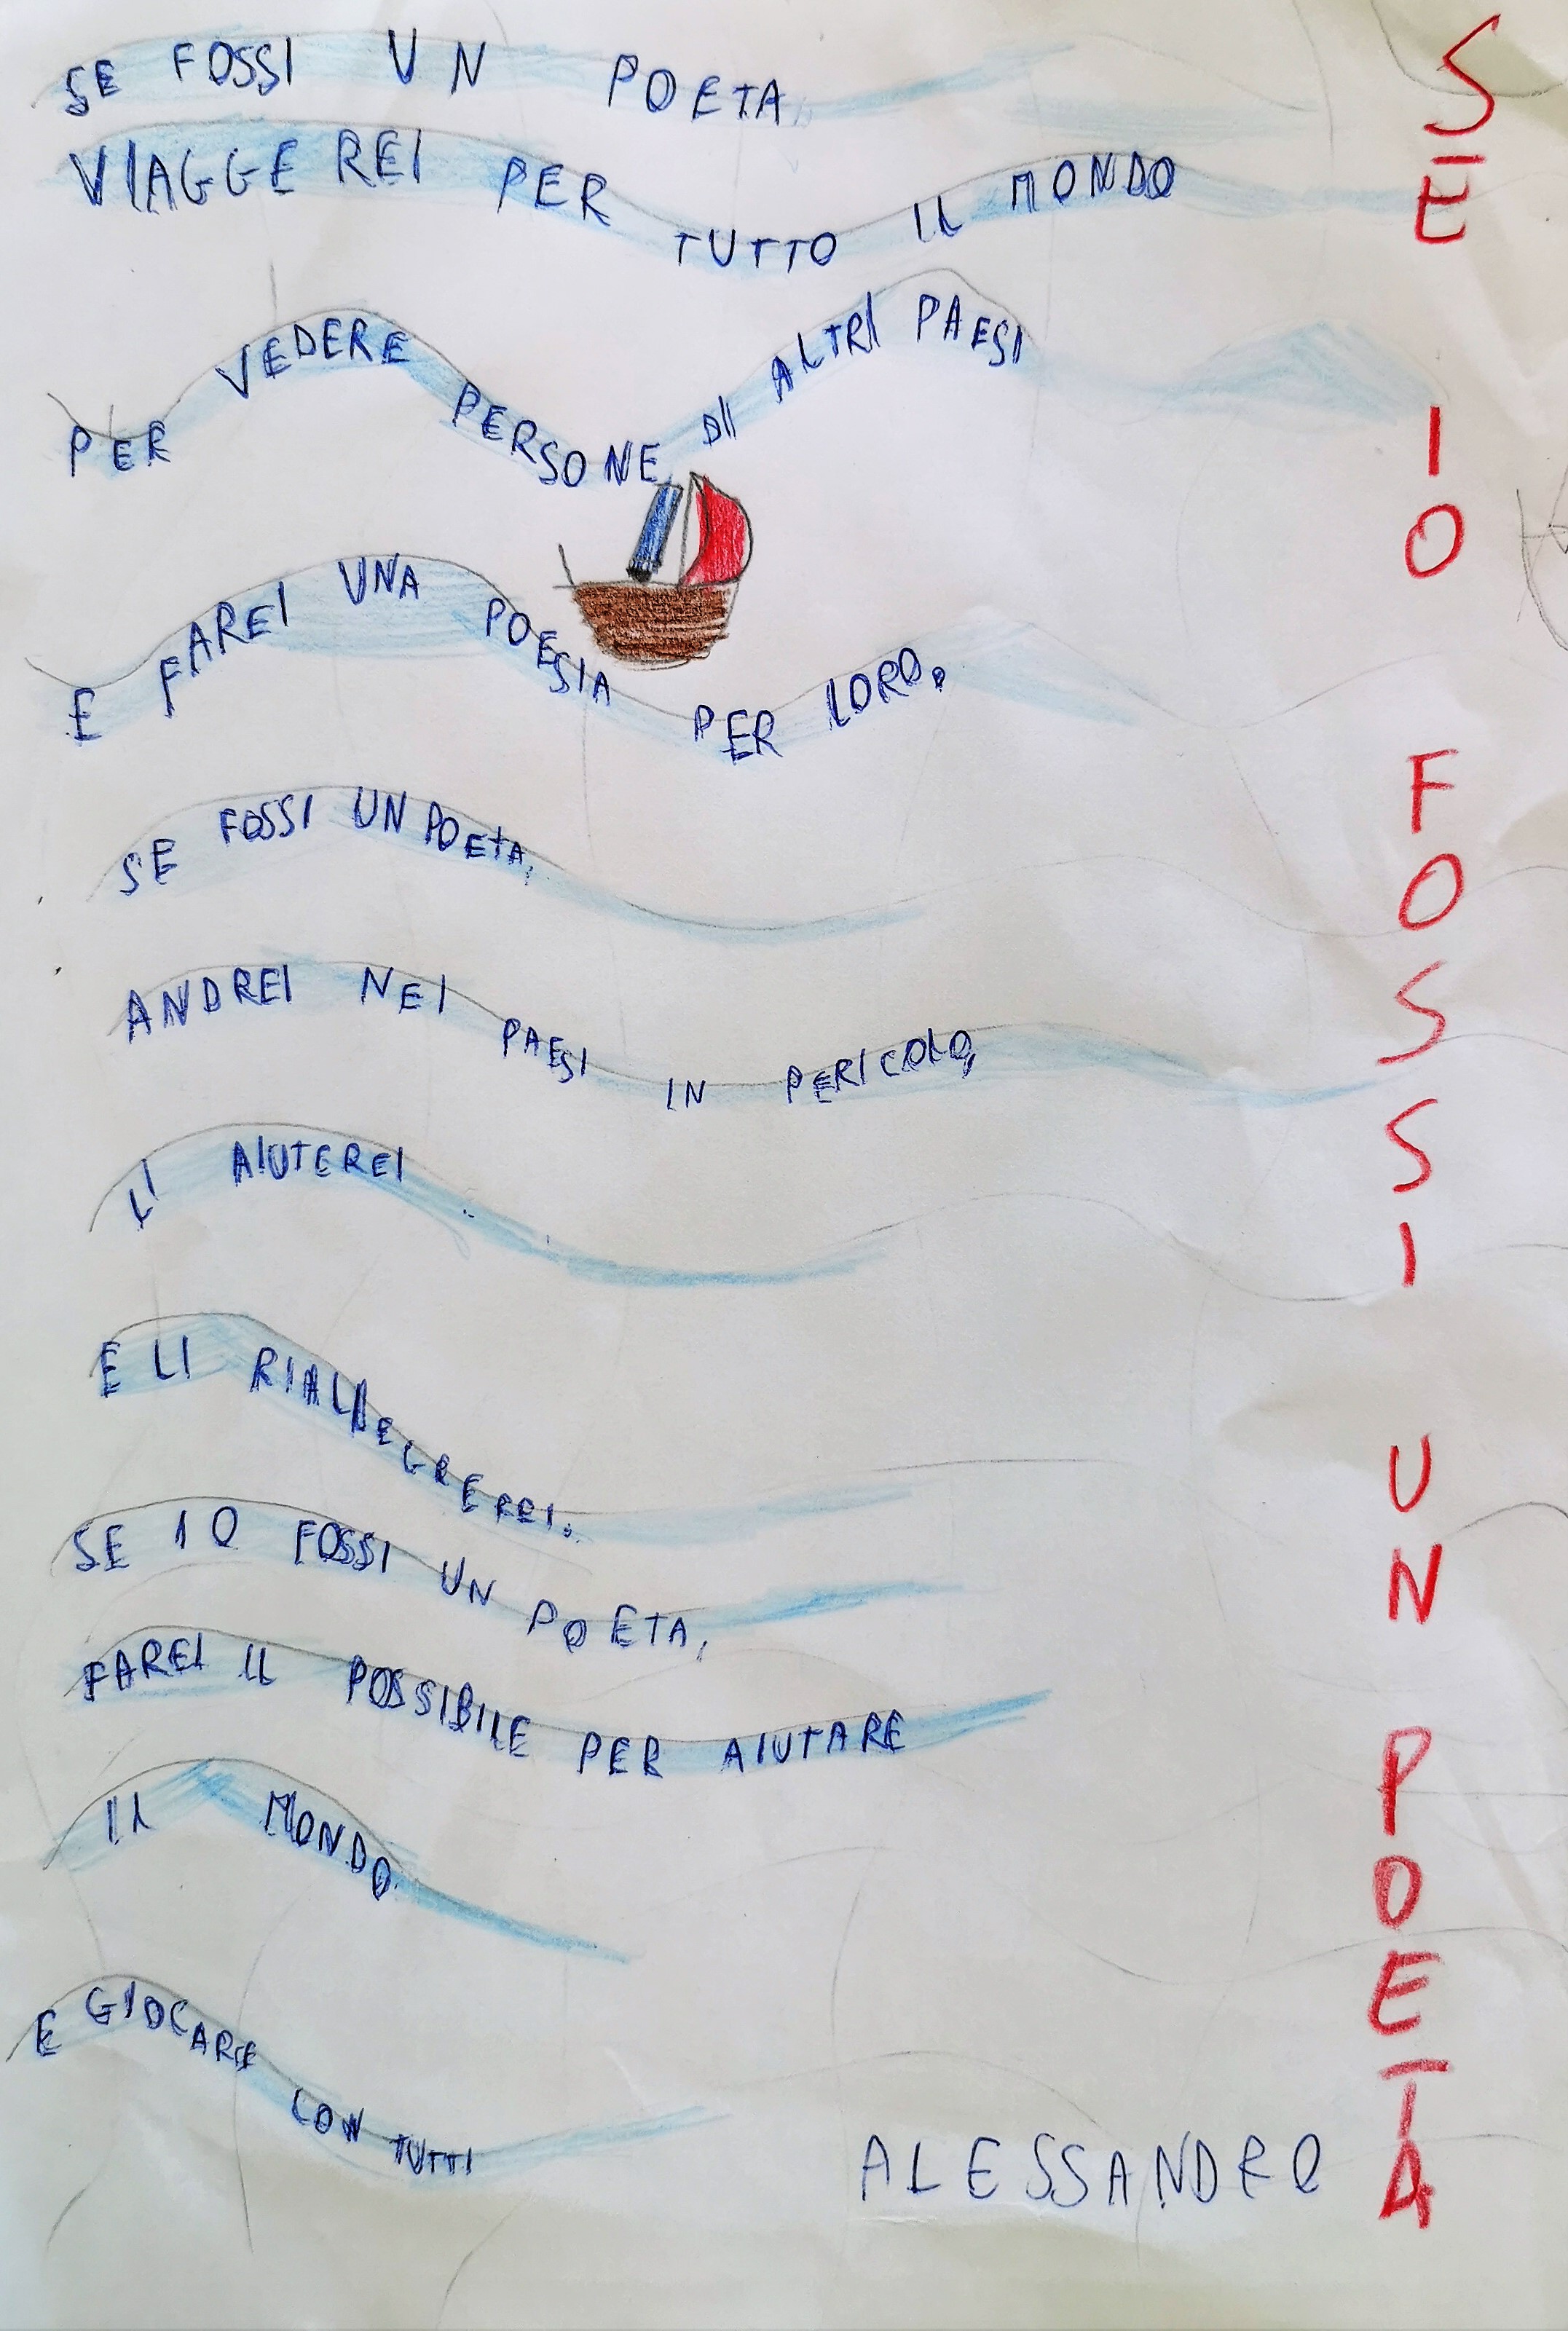 SE FOSSI UN POETA,
VIAGGEREI PER TUTTO IL MONDO
PER VEDERE PERSONE DI ALTRI PAESI
E FAREI UNA POESIA PER LORO.
SE FOSSI UN POETA,
ANDREI NEI PAESI IN PERICOLO,
LI AIUTEREI
E LI RIALLEGREREI.
SE IO FOSSI UN POETA,
FAREI IL POSSIBILE PER AIUTARE
IL MONDO
E GIOCARE CON TUTTI
ALESSANDRO
SE IO FOSSI UN POETA